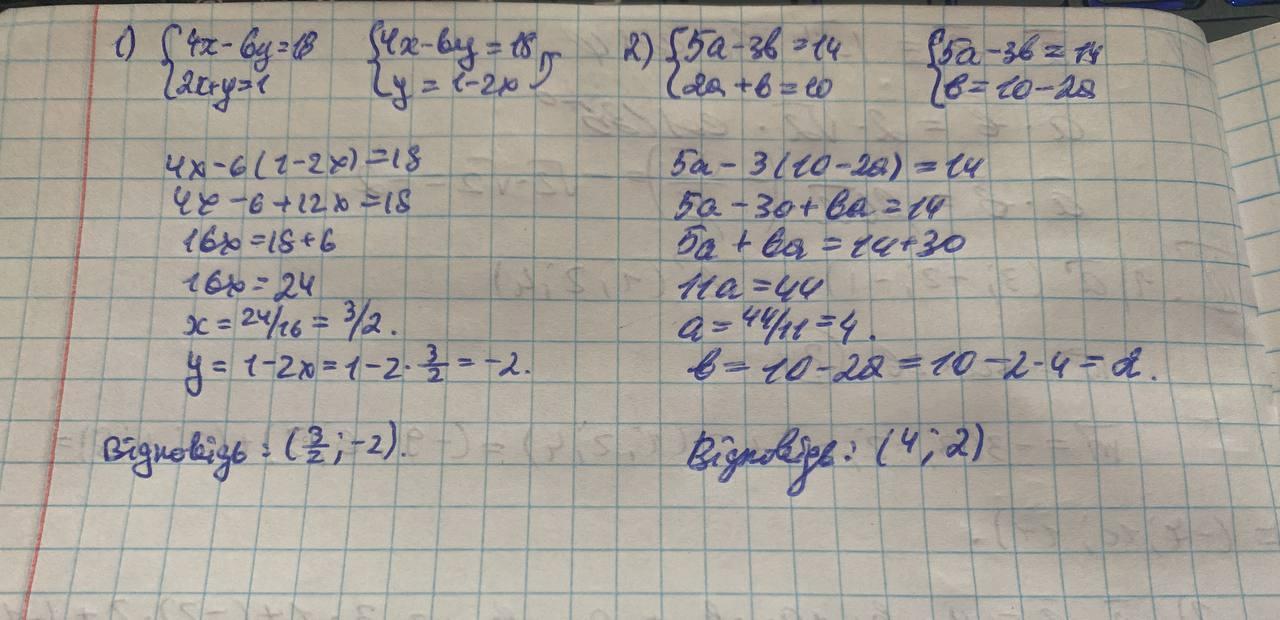 1) {4x-6y=18 {4x-6y=18
{2x+y=1 {y=1-2x
4x-6(1-2x)=18
4x-6+12x=18
16x=18+6
16x=24
x=24/16=3/2.
y=1-2x=1-2·3/2=-2.
Відповідь: (3/2;-2).
2) {5a-3b=14 {5a-3b=14
{2a+b=10 {b=10-2a
5a-3(10-2a)=14
5a-30+6a=14
5a+6a=14+30
11a=44
a=44/11=4.
b=10-2a=10-2·4=2.
Відповідь: (4;2)